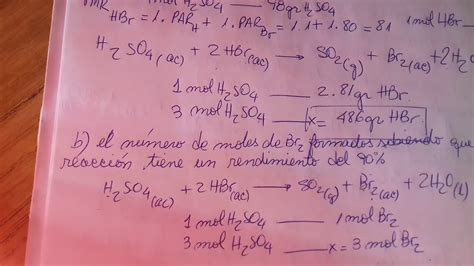 1 mol H₂SO₄ —— 98gr H₂SO₄
HBr = 1. PAR H + 1. PAR Br = 1.1 + 1.80 = 81 1 mol HBr
H₂SO₄(ac) + 2 HBr(ac) → SO₂(g) + Br₂(ac) + 2H₂O
1 mol H₂SO₄ —— 2.81gr HBr
3 mol H₂SO₄ —— x = 486gr HBr
b) el número de moles de Br₂ formados sabiendo que
reacción tiene un rendimiento del 90%
H₂SO₄(ac) + 2 HBr(ac) → SO₂(g) + Br₂(ac) + 2H₂O(l)
1 mol H₂SO₄ —— 1 mol Br₂
3 mol H₂SO₄ —— x = 3 mol Br₂